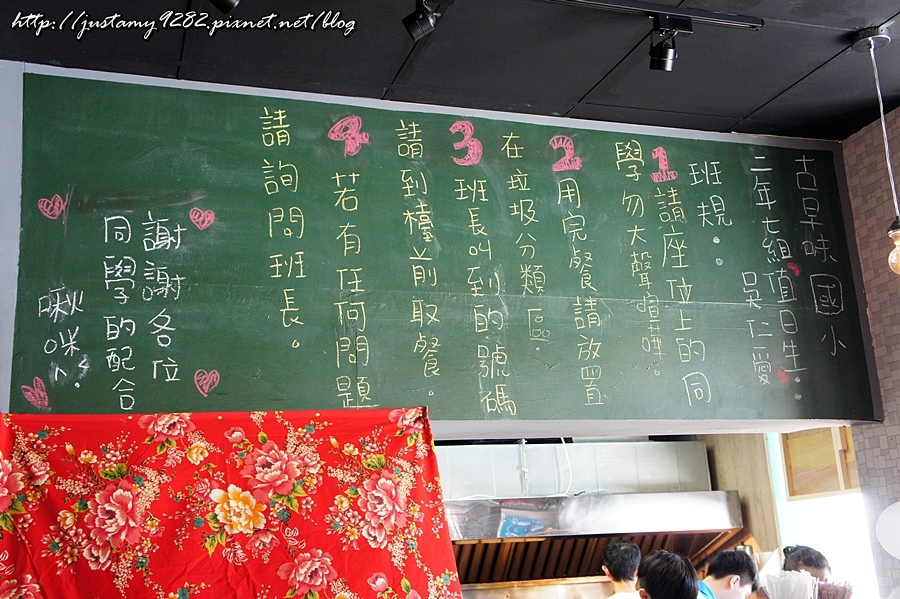 http://justamy9282.pixnet.net/blog
古早味國小
二年七組值日生:
吳仁愛
班規:
1請座位上的同
學勿大聲喧嘩。
2用完餐請放置
在垃圾分類區。
3班長叫到的號碼
請到檯前取餐。
4若有任何問題
請詢問班長。
謝謝各位
同學的配合
啾咪^^.